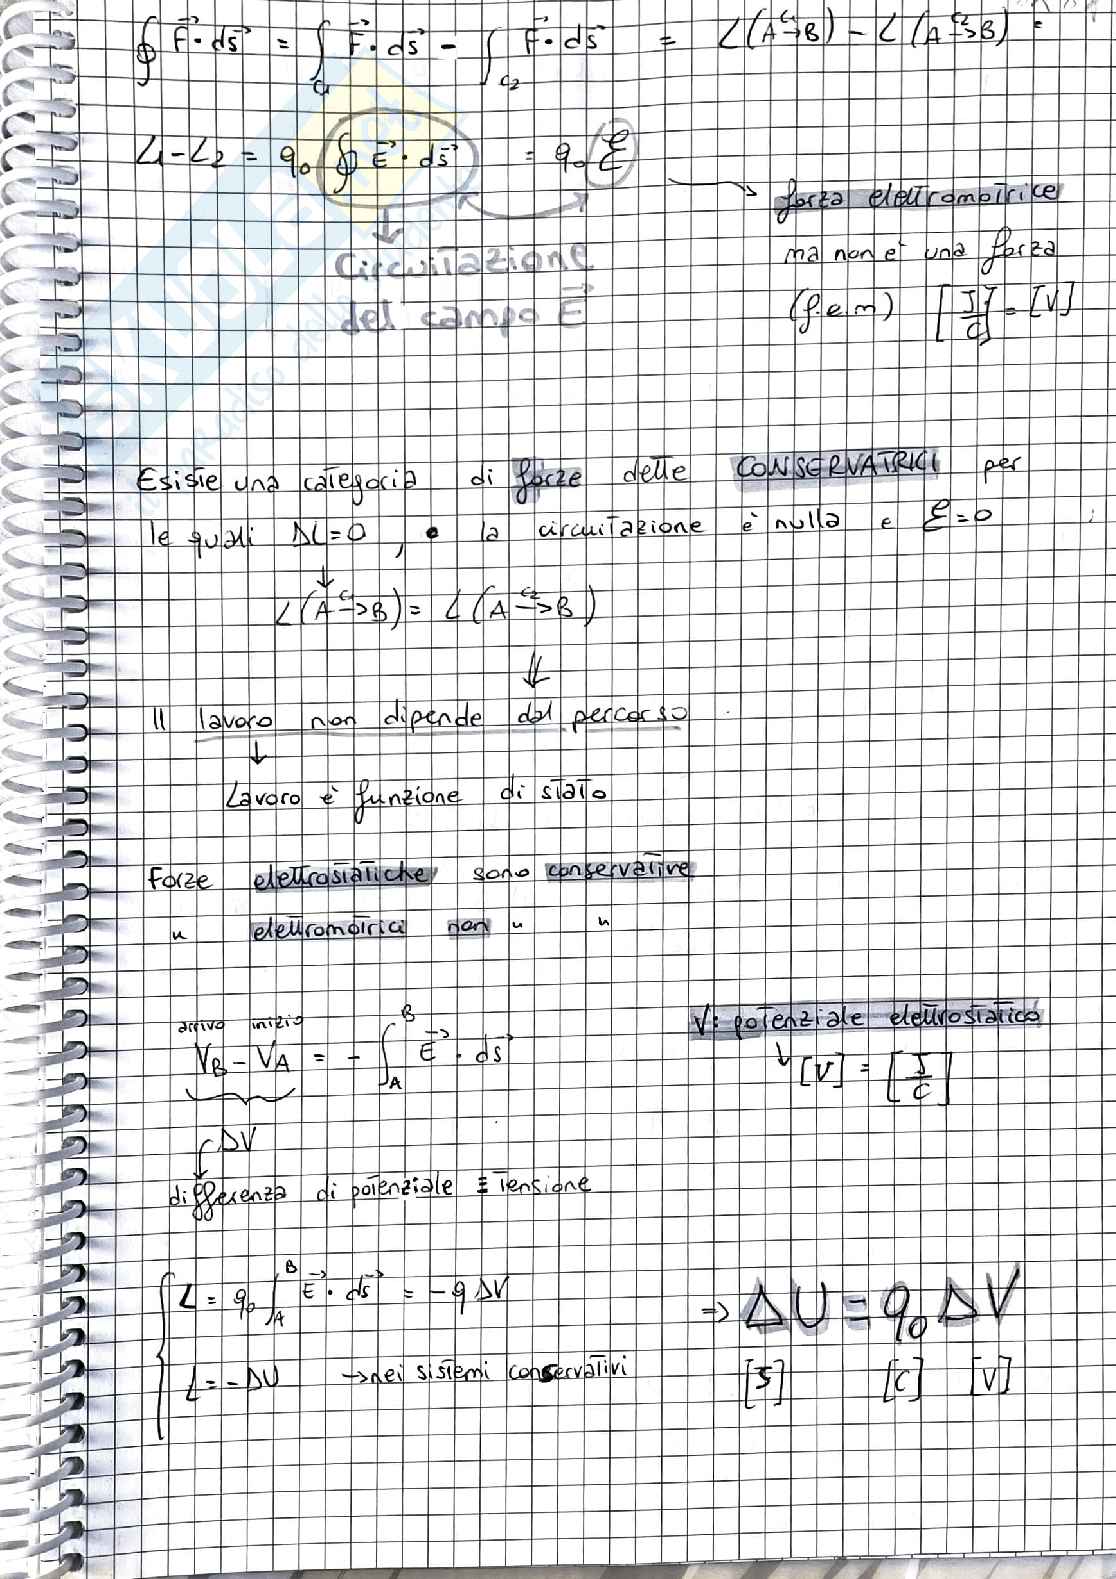 ∮ F⃗ · ds⃗ = ∫_C1 F⃗ · ds⃗ - ∫_C2 F⃗ · ds⃗ = L(A →^C1 B) - L(A →^C2 B) =
L1 - L2 = q0 ∮ E⃗ · ds⃗ = q0 ℰ
forza elettromotrice
ma non è una forza
(f.e.m) [J/C] = [V]
Circuitazione
del campo E⃗
Esiste una categoria di forze dette CONSERVATRICI per
le quali ΔL=0, e la circuitazione è nulla e ℰ=0
↓
L(A →^C1 B) = L(A →^C2 B)
⇓
Il lavoro non dipende dal percorso
↓
Lavoro è funzione di stato
Forze elettrostatiche sono conservative
" elettromotrici non " "
arrivo inizio
VB - VA = - ∫_A^B E⃗ · ds⃗
V: potenziale elettrostatico
↓ [V] = [J/C]
ΔV
differenza di potenziale ≡ Tensione
L = q0 ∫_A^B E⃗ · ds⃗ = -q ΔV
⇒ ΔU = q0 ΔV
L = -ΔU → nei sistemi conservativi
[J] [C] [V]